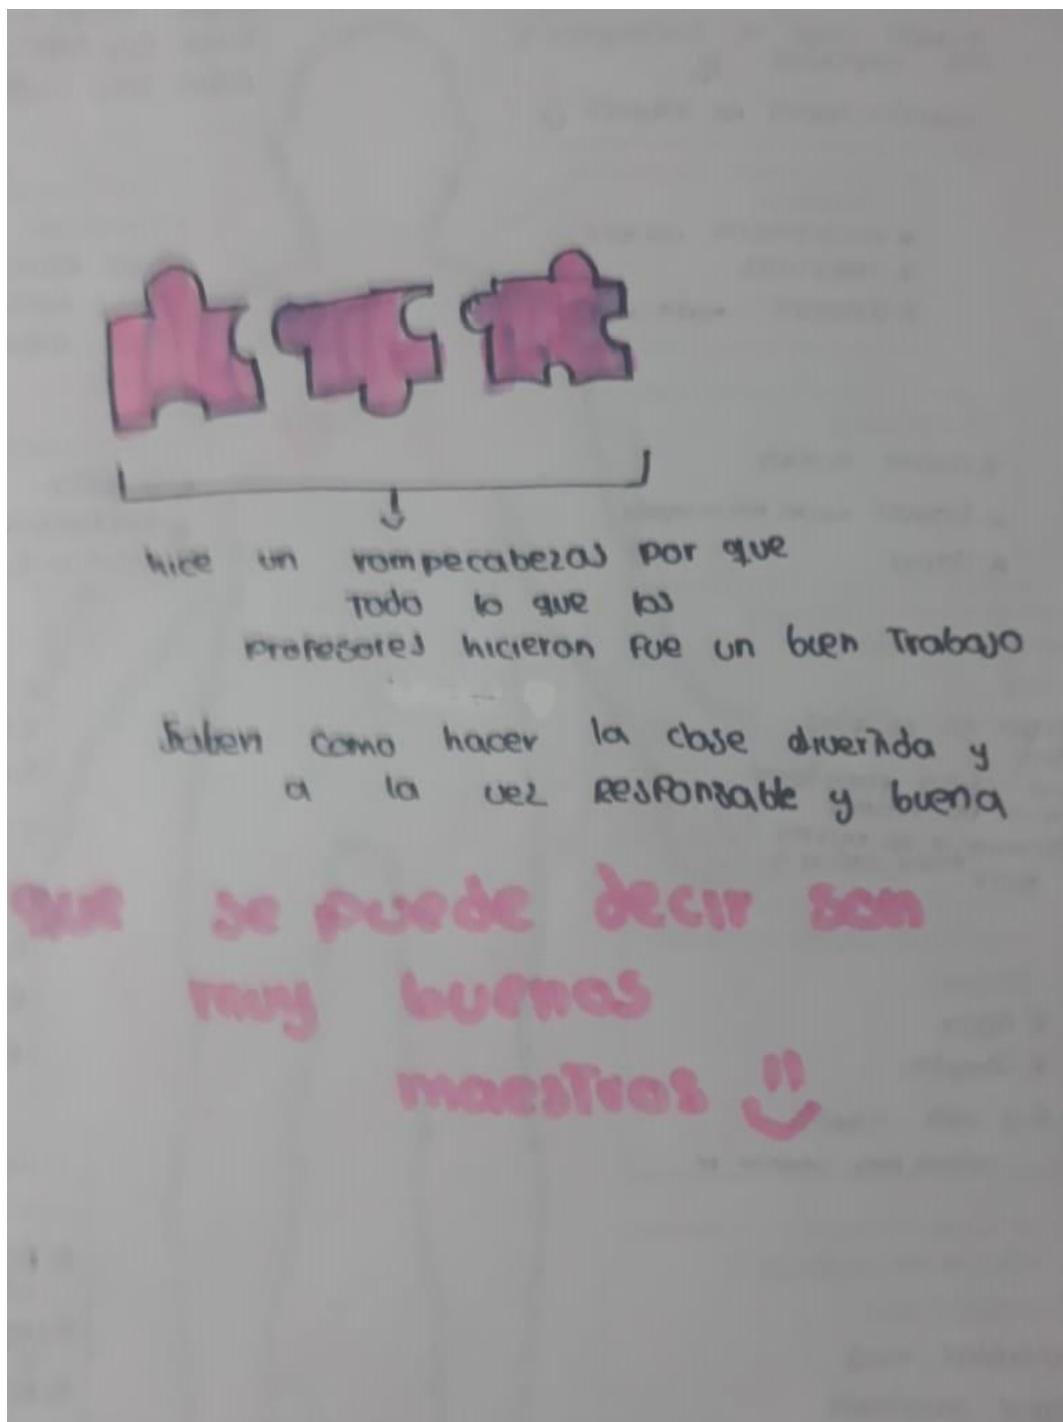 hice un rompecabezas por que
Todo lo que los
profesores hicieron fue un buen Trabajo
Saben como hacer la clase divertida y
a la vez Responsable y buena
que se puede decir son
muy buenos
maestros